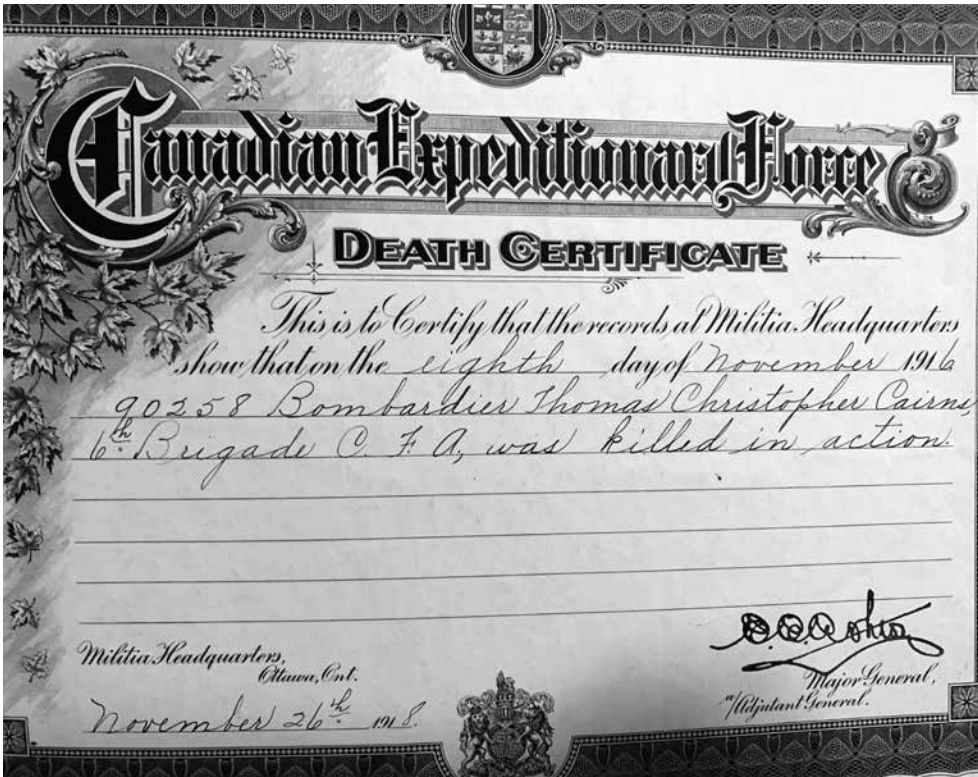 Canadian Expeditionary Force
DEATH CERTIFICATE
This is to Certify that the records at Militia Headquarters
show that on the eighth day of November 1916
90258 Bombardier Thomas Christopher Cairns,
6th Brigade C. F. A, was killed in action.
Militia Headquarters,
Ottawa, Ont.
November 26th 1918.
Major General,
a/Adjutant General.